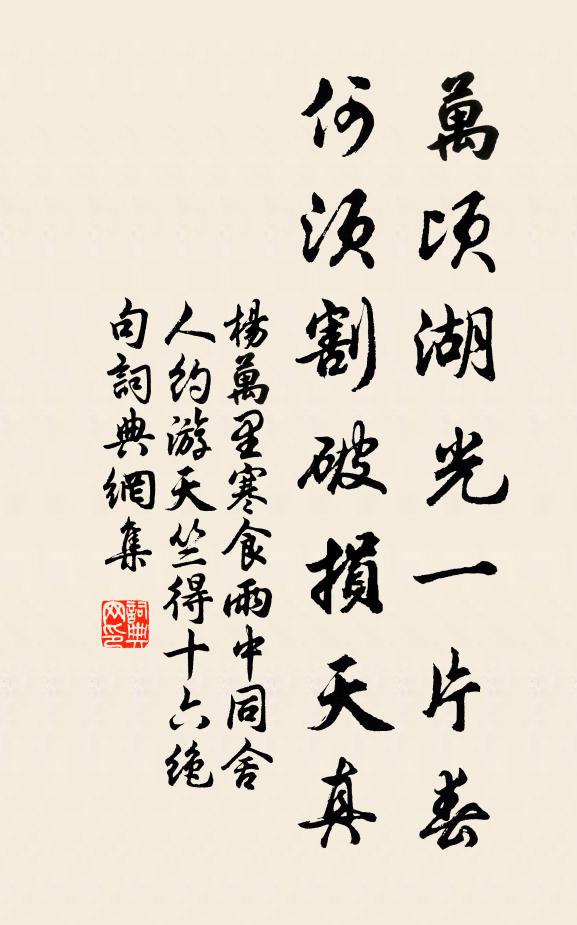 萬頃湖光一片春
何須割破損天真
楊萬里寒食雨中同舍
人約游天竺得十六絶
句詞典網集
詞典
网印